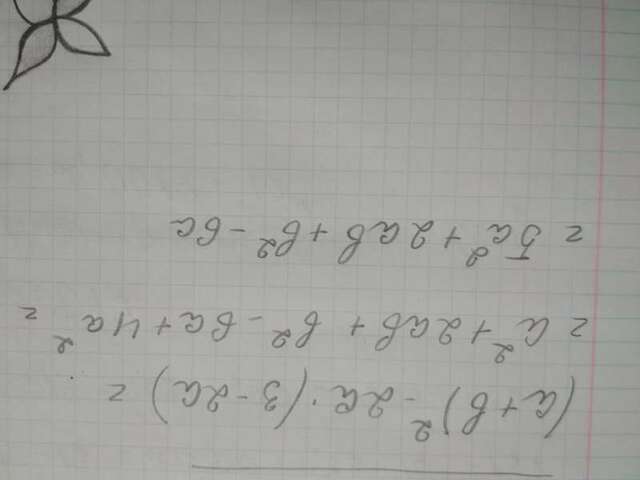 (a+b)² - 2a · (3-2a) =
= a² + 2ab + b² - 6a + 4a² =
= 5a² + 2ab + b² - 6a